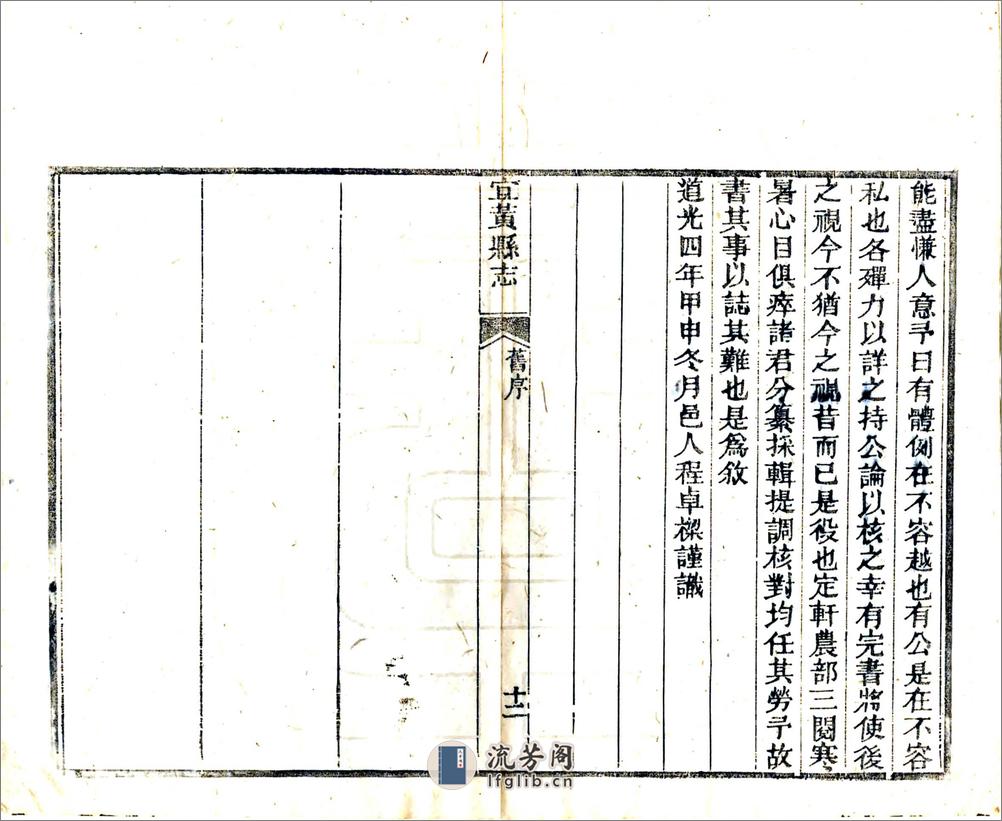 能盡慊人意予曰有體例在不容越也有公是在不容
私也各殫力以詳之持公論以核之幸有完書將使後
之視今不猶今之視昔而已是役也定軒農部三閱寒
暑心目俱瘁諸君分纂採輯提調核對均任其勞予故
書其事以誌其難也是爲敘
道光四年甲申冬月邑人程卓樑謹識
宜黃縣志
舊序
十二
流芳阁
lfglib.cn